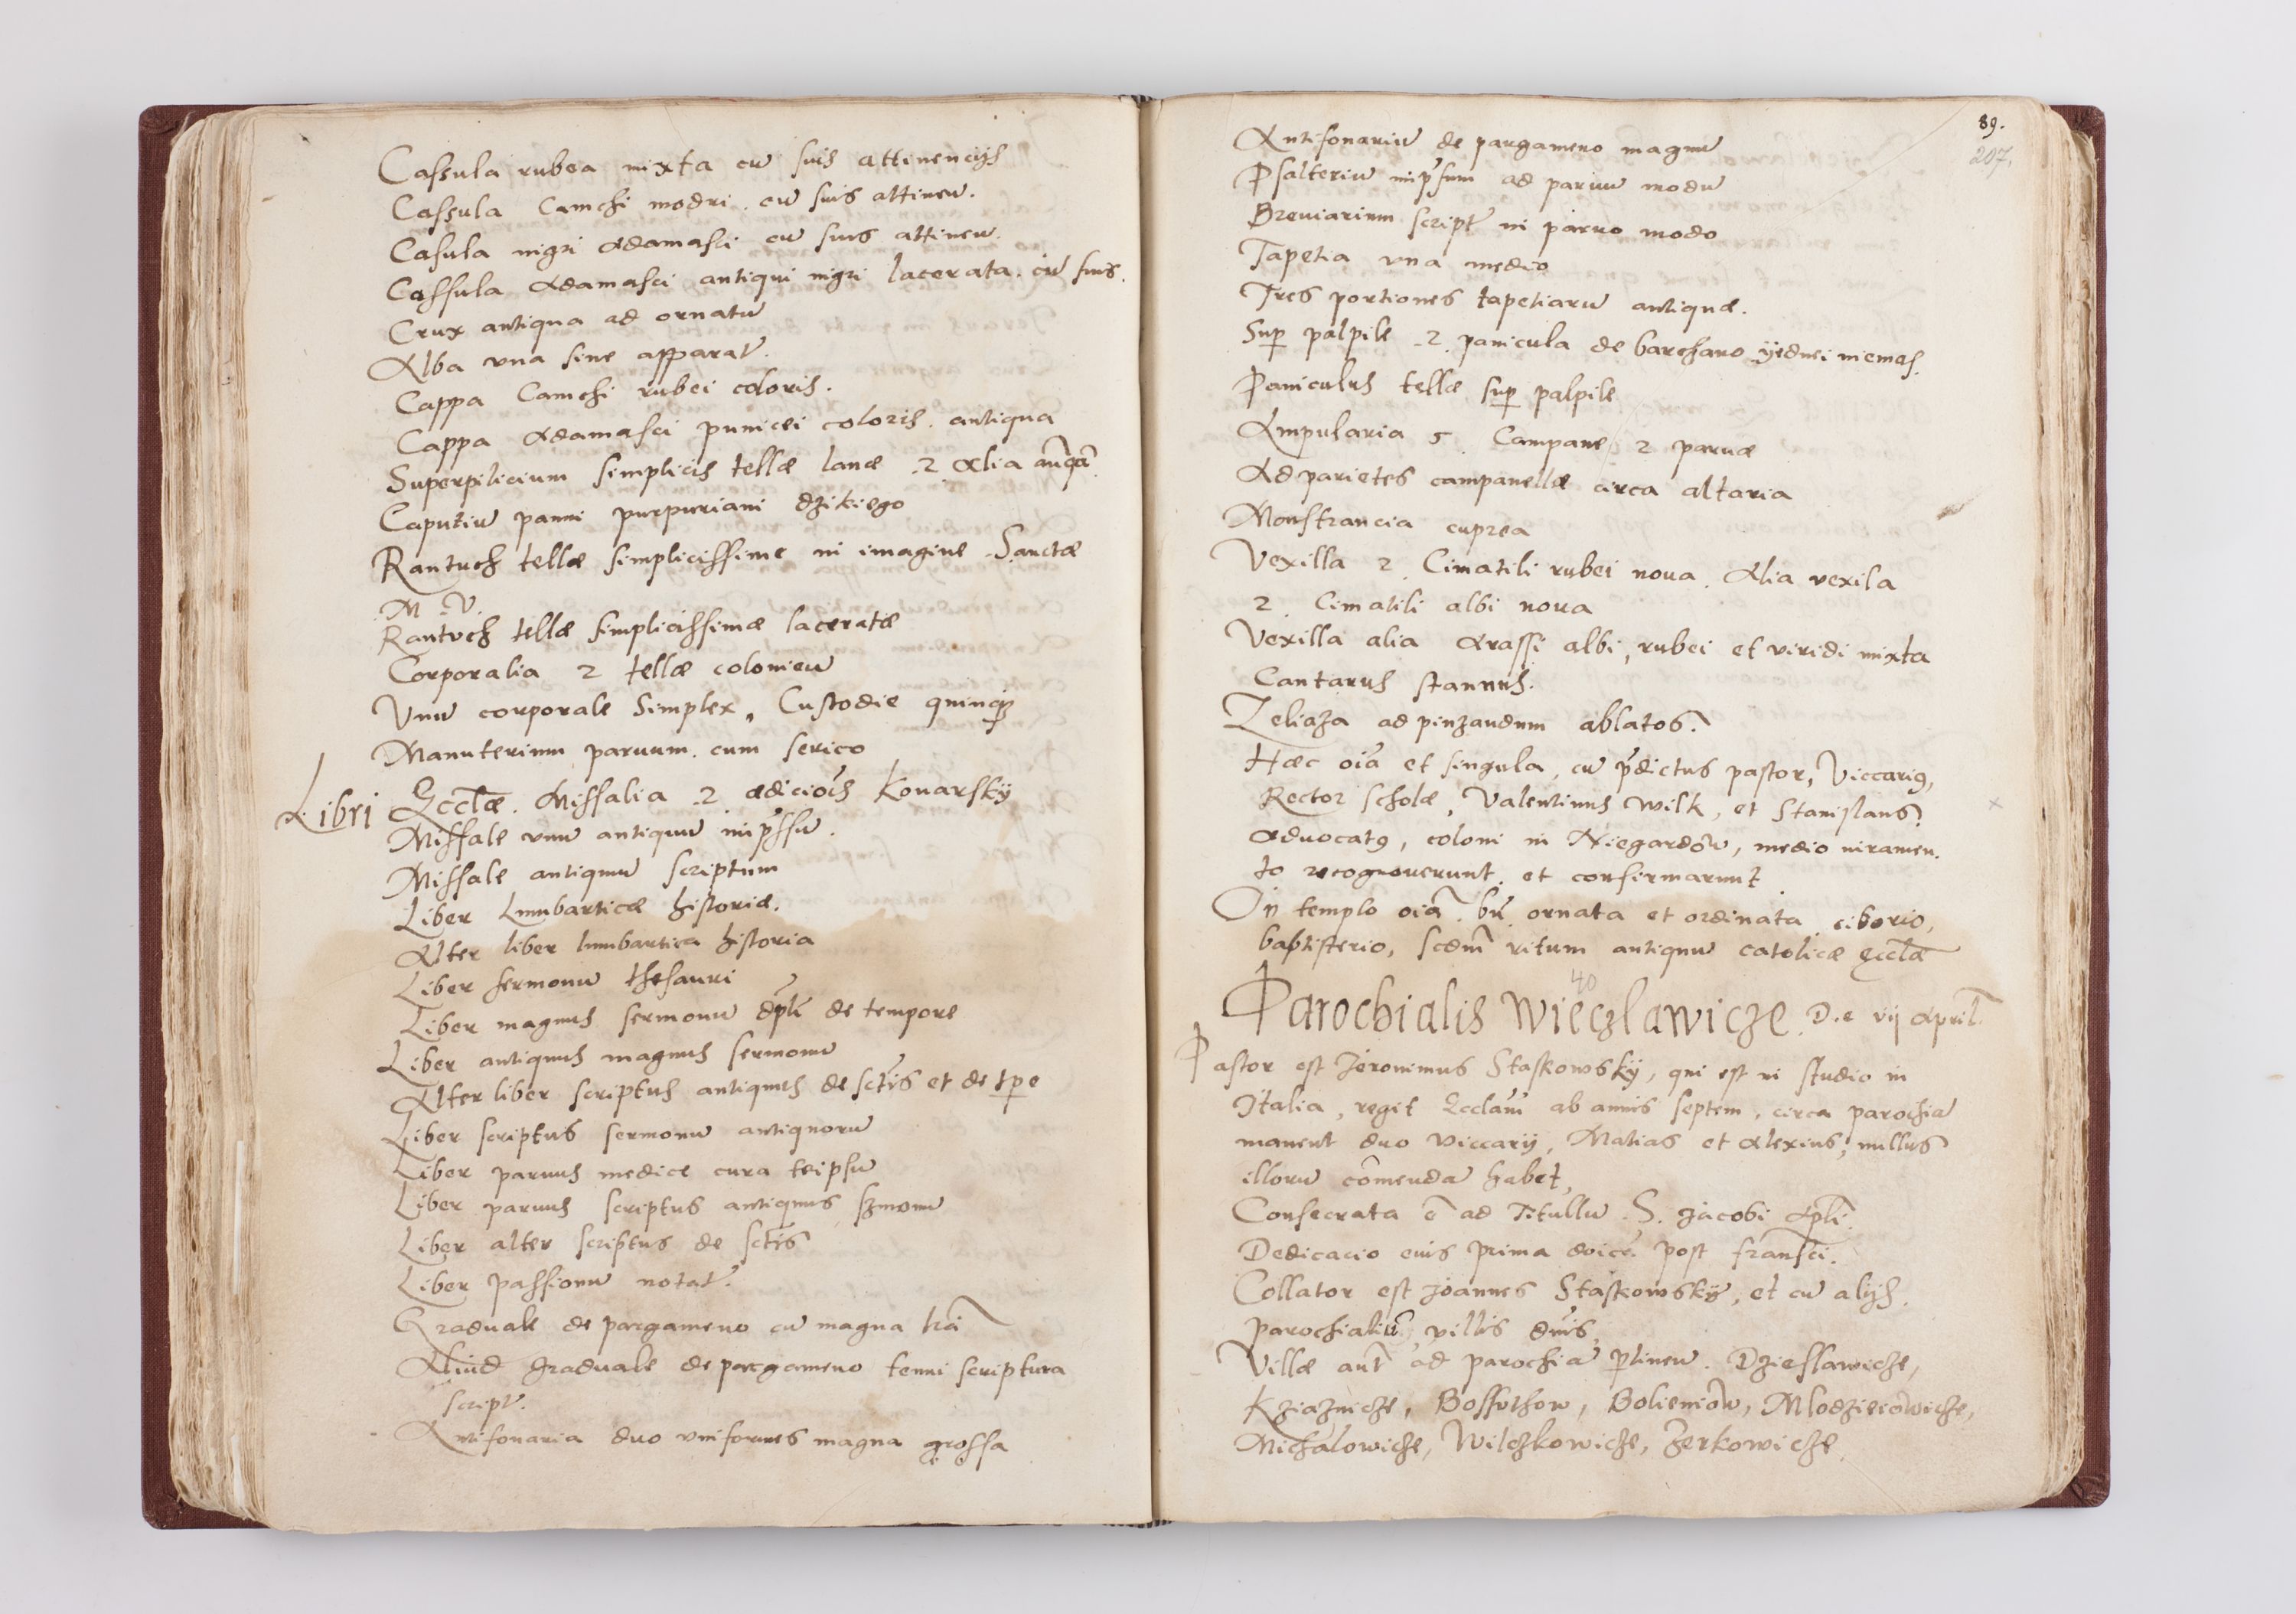 Cassula rubea mixta cu suis attinencijs
Cassula Camchi modri cu suis attinen.
Casula nigri Adamasci cu suis attinen.
Cassula Adamasci antiqui nigri lacerata. cu suis.
Crux antiqua ad ornatu
Alba vna sine apparat.
Cappa Camchi rubei coloris.
Cappa Adamasci punicei coloris. antiqua
Superpilicium simplicis tellæ lanæ .2. Alia
Caputiu panni purpuriani dzikiego
Rantuch tellæ simplicissime in imagine Sanctæ
M V
Rantvch tellæ simplicissimæ laceratæ
Corporalia 2 tellæ colonien
Vnu corporale Simplex, Custodie quinq
Manuterium paruum. cum serico
Libri Ecclæ. Missalia .2. ædiciois Konarskÿ
Missale vnu antiquu impssu.
Missale antiquu scriptum
Liber Lumbarticæ historiæ.
Alter liber lumbartica historia
Liber sermonu thesauri
Liber magnus sermonu dpli de tempore
Liber antiquus magnus sermonu
Alter liber scriptus antiquus de sctis et de tpe
Liber scriptus sermonu antiquoru
Liber paruus medice cura teipsu
Liber paruus scriptus antiquus smonu
Liber alter scriptus de sctis
Liber passionu notat.
Graduale de pargameno cu magna lra
Aliud graduale de pargameno tenui scriptura
script.
Antifonaria duo vniformes magna grossa
89.
207.
Antifonariu de pargameno magnu
Psalteriu impssum ad paruu modu
Breuiarium script in paruo modo
Tapetia vna medio
Tres portiones tapetiaru antiquæ.
Sup palpile .2. panicula de barchano yednei niemas.
Paniculus tellæ sup palpile
Ampularia 5. Campane 2 paruæ
Ad parietes campanellæ circa altaria
Monstrancia cuprea
Vexilla 2. Cimatili rubei noua. Alia vexila
2. Cimatili albi noua
Vexilla alia Arassi albi, rubei et viridi mixta
Cantarus stannus.
Zeliaza ad pinzandum ablatos.
Hæc oia et singula, cu pdictus pastor, Viccari9,
Rector scholæ, Valentinus Wilk, et Stanislaus
Aduocat9, coloni in Niegardow, medio iuramen.
to recognouerunt. et confirmarunt
In templo oia. bn ornata et ordinata ciborio,
baptisterio, scdm ritum antiquu catolicæ Ecclæ
40
Parochialis Wieczlawicze. D.e vij April
Pastor est Jeronimus Staskowskÿ, qui est in studio in
Italia, regit Ecclam ab annis septem, circa parochia
manent duo viccarij, Matias et Alexius, nullus
illoru comenda habet,
Consecrata e ad Titullu .S. Jacobi Apli.
Dedicacio eius prima dnica post fransci.
Collator est Joannes Staskowskÿ, et cu alijs
parochialiu villis dnis.
Villæ aut ad parochia ptinen. Dzieslawicze,
Kziaznicze, Bossuthow, Bolieniow, Mlodzieiowicze,
Michalowicze, Wilczkowicze, Zerkowicze.